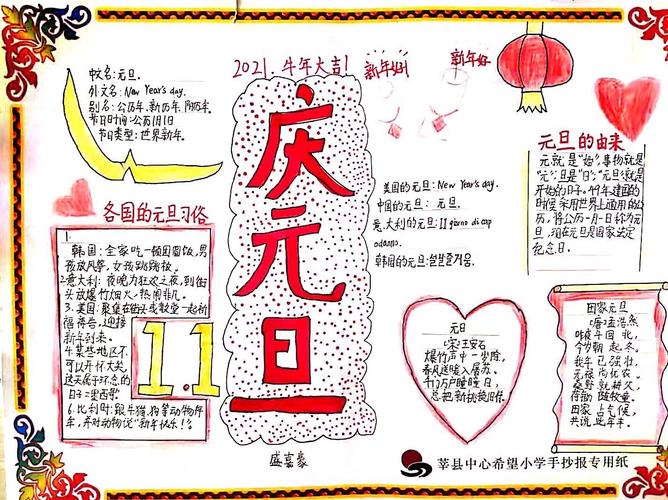 中文名:元旦.
外文名:New Year's day.
别名:公历年、新历年、阳历年.
节日时间:公历1月1日
节日类型:世界新年.
2021 牛年大吉!
新年好!
新年好
庆元旦
盛嘉豪
各国的元旦习俗
1.
韩国:全家吃一顿团圆饭,男
孩放风筝,女孩跳跳板.
2.意大利:夜晚为狂欢之夜,到街
头放爆竹烟火,热闹非凡
3.美国:聚集在街头或教堂一起祈
福祷告,迎接
新年到来.
4.某些地区不
可以开怀大笑,
这天属于怀念的
日子:墨西哥
6.比利时:跟牛、猫、狗等动物拜
年,并对动物说"新年快乐!"
1.1
美国的元旦:New Year's day.
中国的元旦:元旦.
意大利的元旦:Il giorno di cap
odanno.
韩国的元旦:
元旦的由来
元就是"始",事物就是
"元",旦是"日",元旦意就是
开始的日子.49年建国的
时候采用世界上通用的公
历,将公历一月一日称为元
旦,现在元旦是国家法定
纪念日.
元日
(宋)王安石
爆竹声中一岁除,
春风送暖入屠苏.
千门万户曈曈日,
总把新桃换旧符.
田家元旦
(唐)孟浩然
昨夜斗回北,
今朝岁起东.
我年已强壮,
无禄尚忧农.
桑野就耕父,
荷锄随牧童.
田家占气候,
共说此年丰.
莘县中心希望小学手抄报专用纸